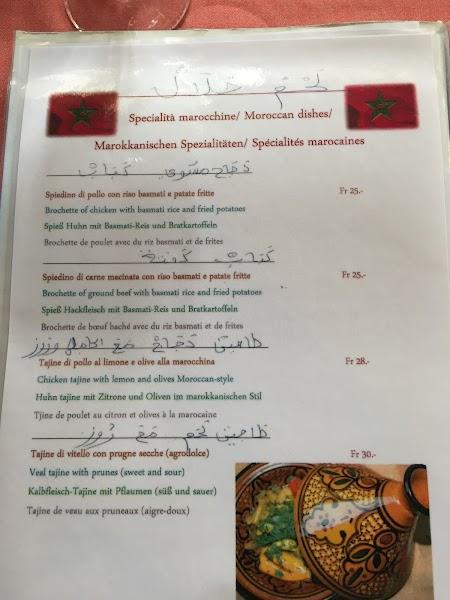 لحم حلال
Specialità marocchine/ Moroccan dishes/
Marokkanischen Spezialitäten/ Spécialités marocaines
دجاج مشوي كباب
Spiedino di pollo con riso basmati e patate fritte Fr 25.-
Brochette of chicken with basmati rice and fried potatoes
Spieß Huhn mit Basmati-Reis und Bratkartoffeln
Brochette de poulet avec du riz basmati et de frites
كباب كفتة
Spiedino di carne macinata con riso basmati e patate fritte Fr 25.-
Brochette of ground beef with basmati rice and fried potatoes
Spieß Hackfleisch mit Basmati-Reis und Bratkartoffeln
Brochette de bœuf haché avec du riz basmati et de frites
طاجين دجاج مع
Tajine di pollo al limone e olive alla marocchina Fr 28.-
Chicken tajine with lemon and olives Moroccan-style
Huhn tajine mit Zitrone und Oliven im marokkanischen Stil
Tjine de poulet au citron et olives à la marocaine
طاجين لحم مع روز
Tajine di vitello con prugne secche (agrodolce) Fr 30.-
Veal tajine with prunes (sweet and sour)
Kalbfleisch-Tajine mit Pflaumen (süß und sauer)
Tajine de veau aux pruneaux (aigre-doux)